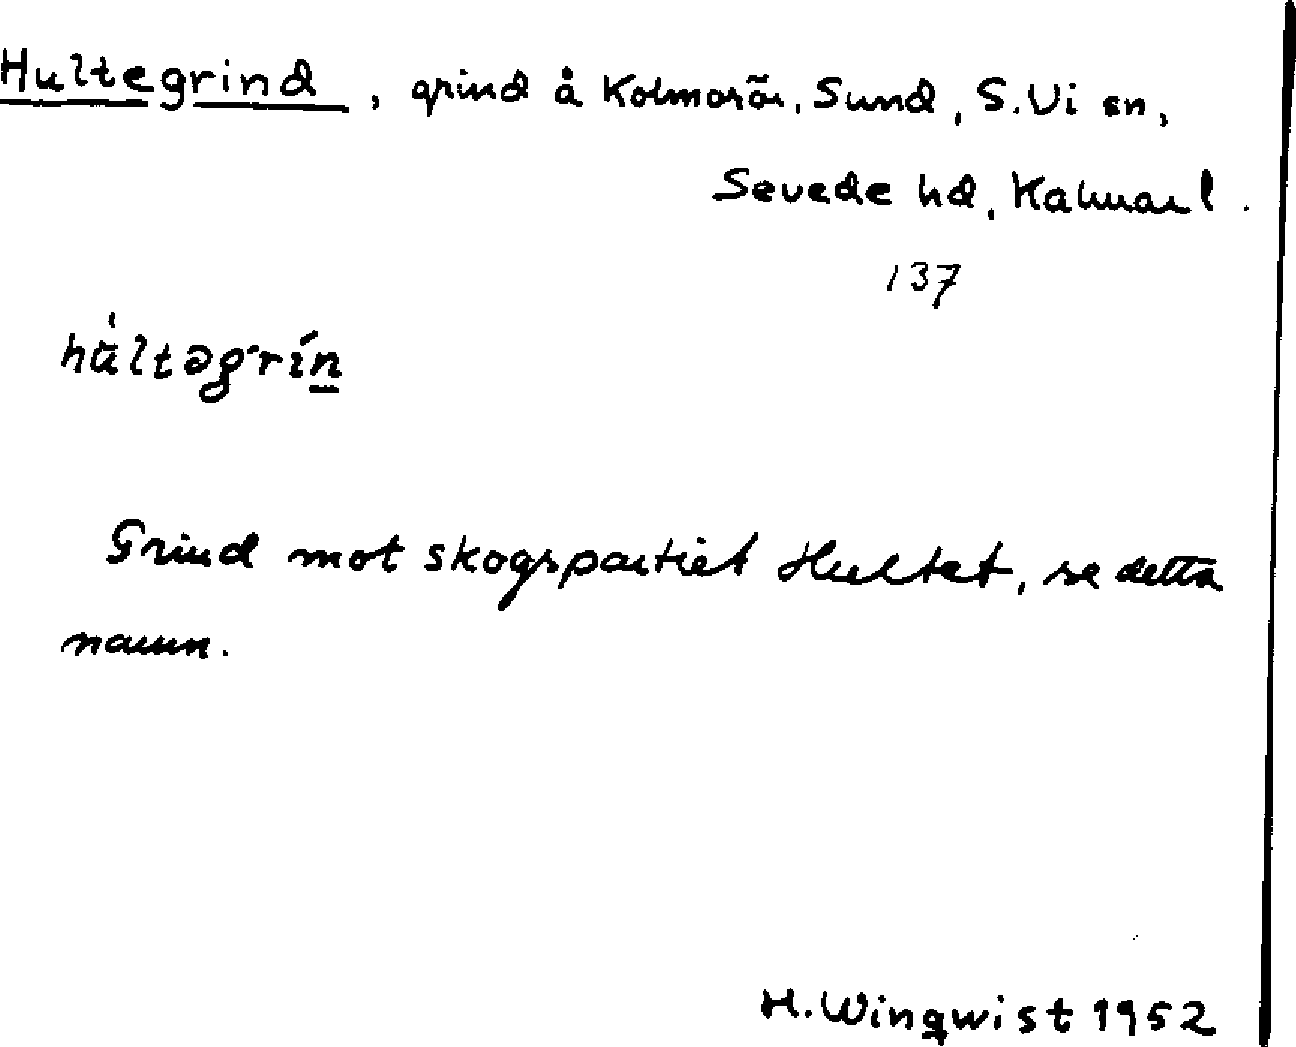 Hultegrind, grind å Kolmorör, Sund, S. Vi sn,
Sevede hd, Kalmar l.
137
hùltəgrín
Grind mot skogspartiet Hultet, se detta
namn.
H. Wingwist 1952